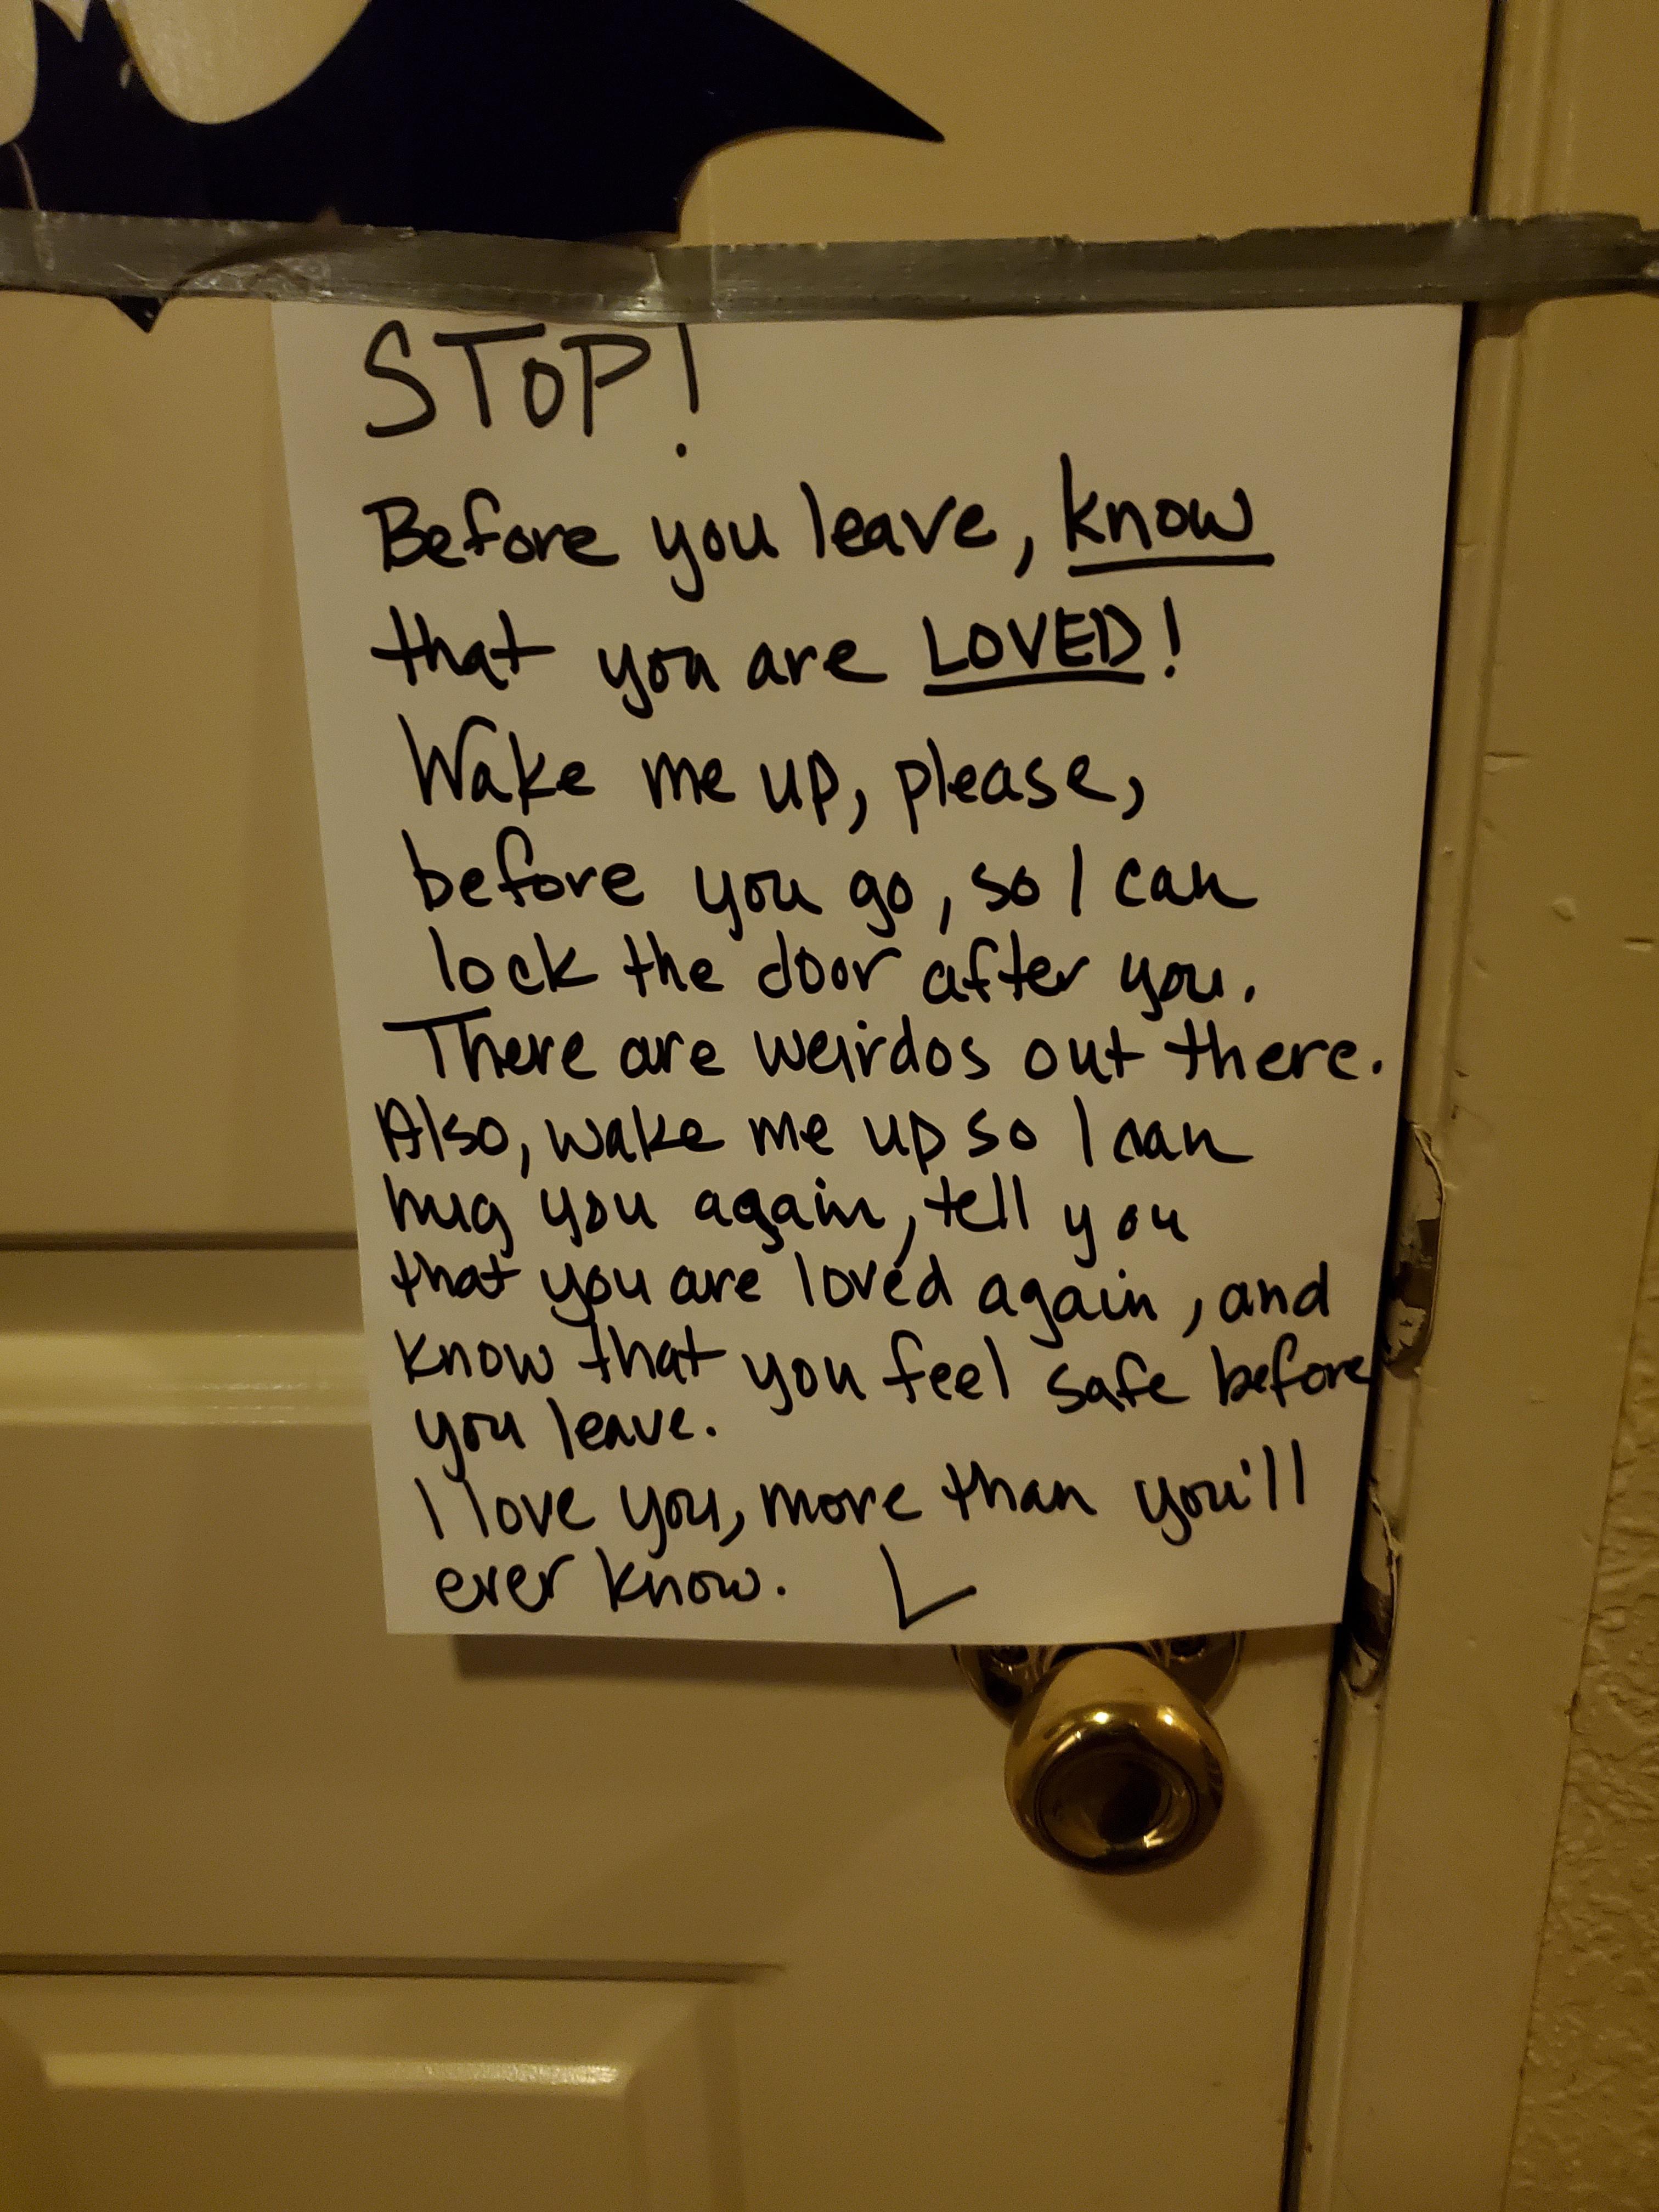 STOP!
Before you leave, know
that you are LOVED!
Wake me up, please,
before you go, so I can
lock the door after you.
There are weirdos out there.
Also, wake me up so I can
hug you again, tell you
that you are loved again, and
know that you feel safe before
you leave.
I love you, more than you'll
ever know. L